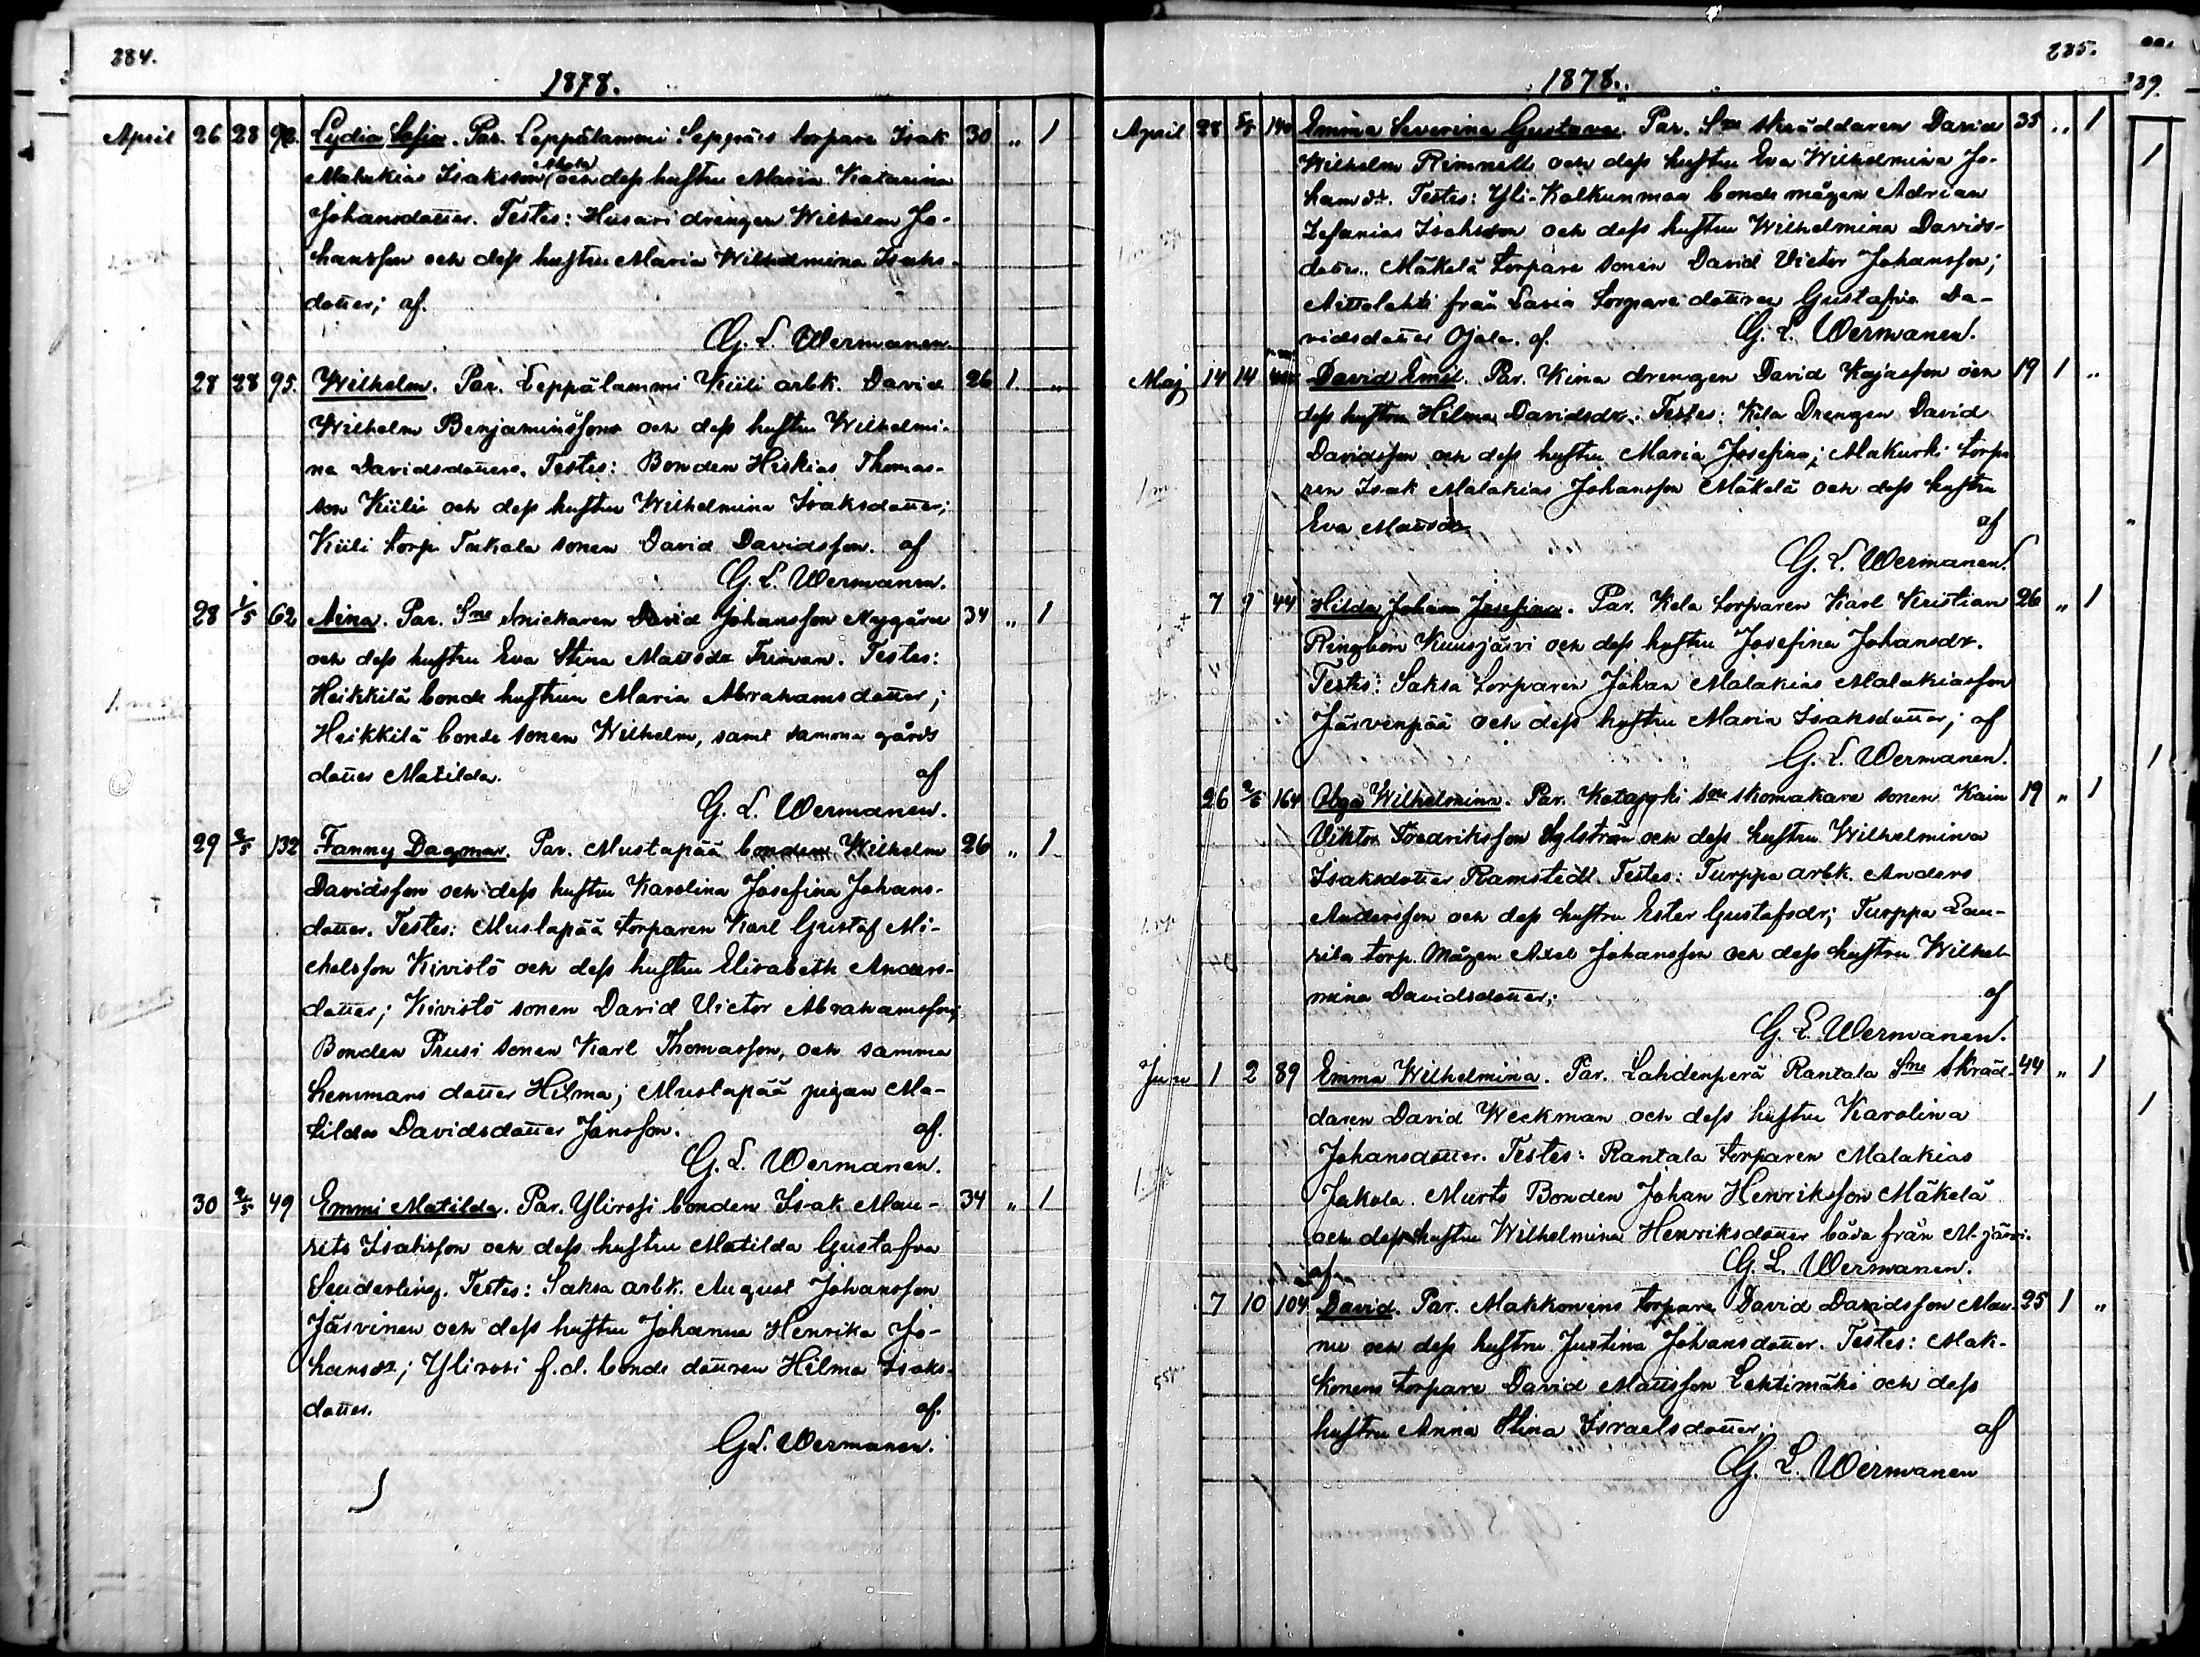 284.
1878.
April 26 28 92. Lydia Sofia. Par. Leppälammi Seppäis torpare Isak 30 " 1
Malakias Isaksson Ahola och dess hustru Maria Katarina
Johansdotter. Testes: Husari drengen Wilhelm Jo-
hansson och dess hustru Maria Wilhelmina Isaks-
dotter; af.
G. L. Wermanen.
28 28 95. Wilhelm. Par. Leppälammi Kiili arbk. David 26 1 "
Wilhelm Benjaminsson och dess hustru Wilhelmi-
na Davidsdotter. Testes: Bonden Hiskias Thomas-
son Kiili och dess hustru Wilhelmina Isaksdotter;
Kiili torp. Takala sonen David Davidsson. af
G. L. Wermanen.
28 1/5 62 Aina. Par. Sne snickaren David Johansson Nygård 34 " 1
och dess hustru Eva Stina Mattsdr Friman. Testes:
Heikkilä bonde hustrun Maria Abrahamsdotter;
Heikkilä bonde sonen Wilhelm, samt samma gårds
dotter Matilda. af
G. L. Wermanen.
29 2/5 132 Fanny Dagmar. Par. Mustapää bonden Wilhelm 26 " 1
Davidsson och dess hustru Karolina Josefina Johans-
dotter. Testes: Mustapää torparen Karl Gustaf Mi-
chelsson Kivistö och dess hustru Elisabeth Anders-
dotter; Kivistö sonen David Victor Abrahamsson;
Bonden Prusi sonen Karl Thomasson, och samma
hemmans dotter Hilma; Mustapää pigan Ma-
tilda Davidsdotter Jansson. af.
G. L. Wermanen.
30 2/5 49 Emmi Matilda. Par. Ylirosi bonden Isak Mau- 34 " 1
rits Isaksson och dess hustru Matilda Gustafva
Senderling. Testes: Saksa arbk. August Johansson
Järvinen och dess hustru Johanna Henrika Jo-
hansdr; Ylirosi f.d. bonde dottren Hilma Isaks-
dotter. af.
G L. Wermanen.
285.
1878.
April 28 5/5 140 Emma Severina Gustava. Par. Sne skräddaren David 35 " 1
Wilhelm Rimnell och dess hustru Eva Wilhelmina Jo-
hansdr. Testes: Yli-Kalkunmaa bonde mågen Adrian
Zefanias Isaksson och dess hustru Wilhelmina Davids-
dotter. Mäkelä torpare sonen David Victor Johansson;
från Lavia torpare dottren Gustafva Da-
vidsdotter Ojala. af. G. L. Wermanen.
Maj 14 14 David Emil. Par. Kina drengen David Kajasson och 19 1 "
dess hustru Hilma Davidsdr. Testes: Kila Drengen David
Davidsson och dess hustru Maria Josefina; Makurki torpa-
ren Isak Malakias Johansson Mäkelä och dess hustru
Eva Mattsdr af
G. L. Wermanen.
7 9 44 Hilda Johana Josefina. Par. Kela torparen Karl Kristian 26 " 1
Ringbom Kuusjärvi och dess hustru Josefina Johansdr.
Testes: Saksa torparen Johan Malakias Malakiasson
Järvenpää och dess hustru Maria Isaksdotter; af
G. L. Wermanen.
26 2/6 164 Olga Wilhelmina. Par. Katajoki Sne skomakare sonen Kain 19 " 1
Viktor Fredriksson Sylström och dess hustru Wilhelmina
Isaksdotter Ramstedt. Testes: Turppa arbk. Anders
Andersson och dess hustru Ester Gustafsdr; Turppa Lau-
rila torp. mågen Axel Johansson och dess hustru Wilhel-
mina Davidsdotter; af
G. L. Wermanen.
Juni 1 2 89 Emma Wilhelmina. Par. Lahdenperä Rantala Sne Skräd- 44 " 1
daren David Weckman och dess hustru Karolina
Johansdotter. Testes: Rantala torparen Malakias
Jakola. Murto Bonden Johan Henriksson Mäkelä
och dess hustru Wilhelmina Henriksdotter båda från M-järvi.
af G. L. Wermanen.
7 10 104. David. Par. Makkonens torpare David Davidsson Man- 25 1 "
nu och dess hustru Justina Johansdotter. Testes: Mak-
konens torpare David Mattsson Lehtimäki och dess
hustru Anna Stina Israelsdotter; af
G. L. Wermanen